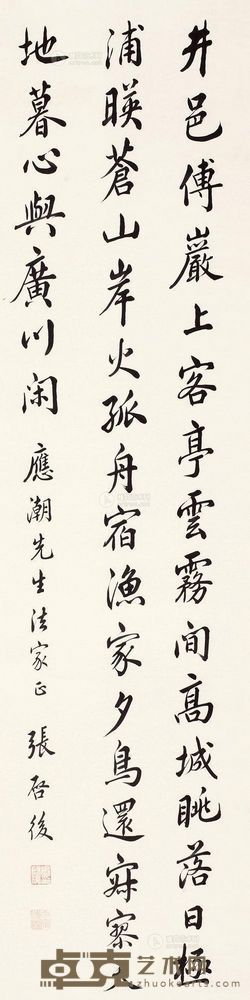 井邑傅巖上客亭雲霧間高城眺落日極
浦暎蒼山岸火孤舟宿漁家夕鳥還寂寥天
地暮心與廣川闲
應潮先生法家正 張啓後
卓克艺术网